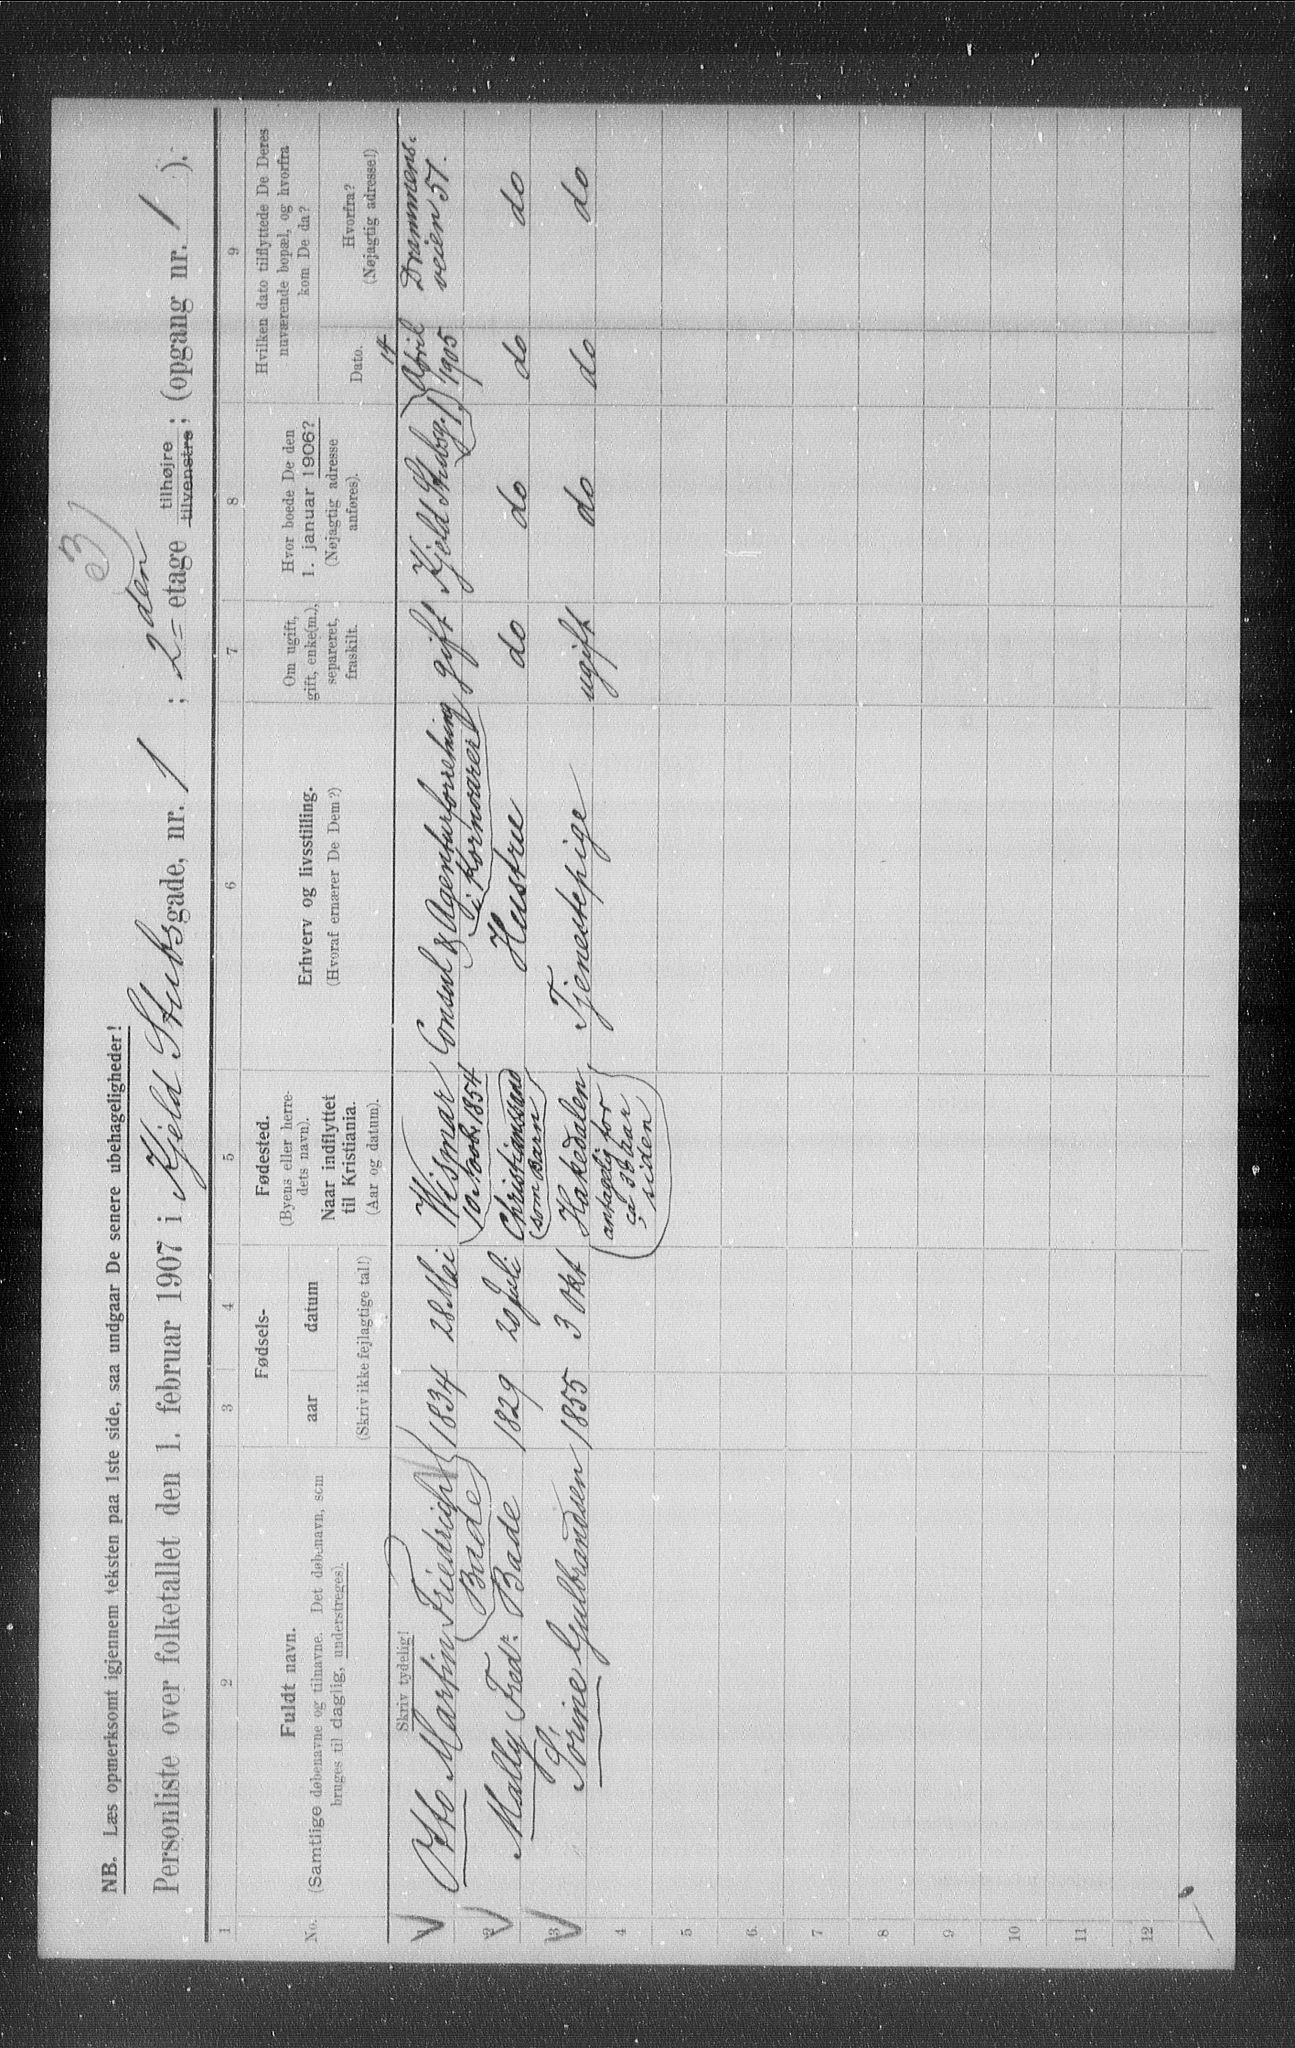 NB. Læs opmerksomt igjennem teksten paa 1ste side, saa undgaar De senere ubehageligheder!
3
Personliste over folketallet den 1. februar 1907 i Kjeld Stubsgade, nr. 1 ; 2den etage tilhøjre tilvenstre ; (opgang nr. 1 ).
1 2 3 4 5 6 7 8 9
No.
Fuldt navn.
(Samtlige døbenavne og tilnavne. Det døbenavn, som
bruges til daglig, understreges).
Fødsels-
aar datum
(Skriv ikke fejlagtige tal!)
Fødested.
(Byens eller herre-
dets navn).
Naar indflyttet
til Kristiania.
(Aar og datum).
Erhverv og livsstilling.
(Hvoraf ernærer De Dem?)
Om ugift,
gift, enke(m.),
separeret,
fraskilt.
Hvor boede De den
1. januar 1906?
(Nøjagtig adresse
anføres).
Hvilken dato tilflyttede De Deres
nuværende bopæl, og hvorfra
kom De da?
Dato.
Hvorfra?
(Nøjagtig adresse!)
Skriv tydelig!
Otto Martin Friedrich Bade 1834 28 Mai Wismar 10 Novbr 1854 Consul & Agenturforretning i Kornvarer gift Kjeld Stubsg. 1 14 April 1905 Drammens-
veien 51.
2 Mally Fredr: Bade 1829 20 Juli Christianssand (som Barn) Hustru do do do do
3 Sørine Gulbrandsen 1855 3 Okt Hakedalen antagelig for ca 38 aar siden Tjenestepige ugift do do do
4
5
6
7
8
9
10
11
12